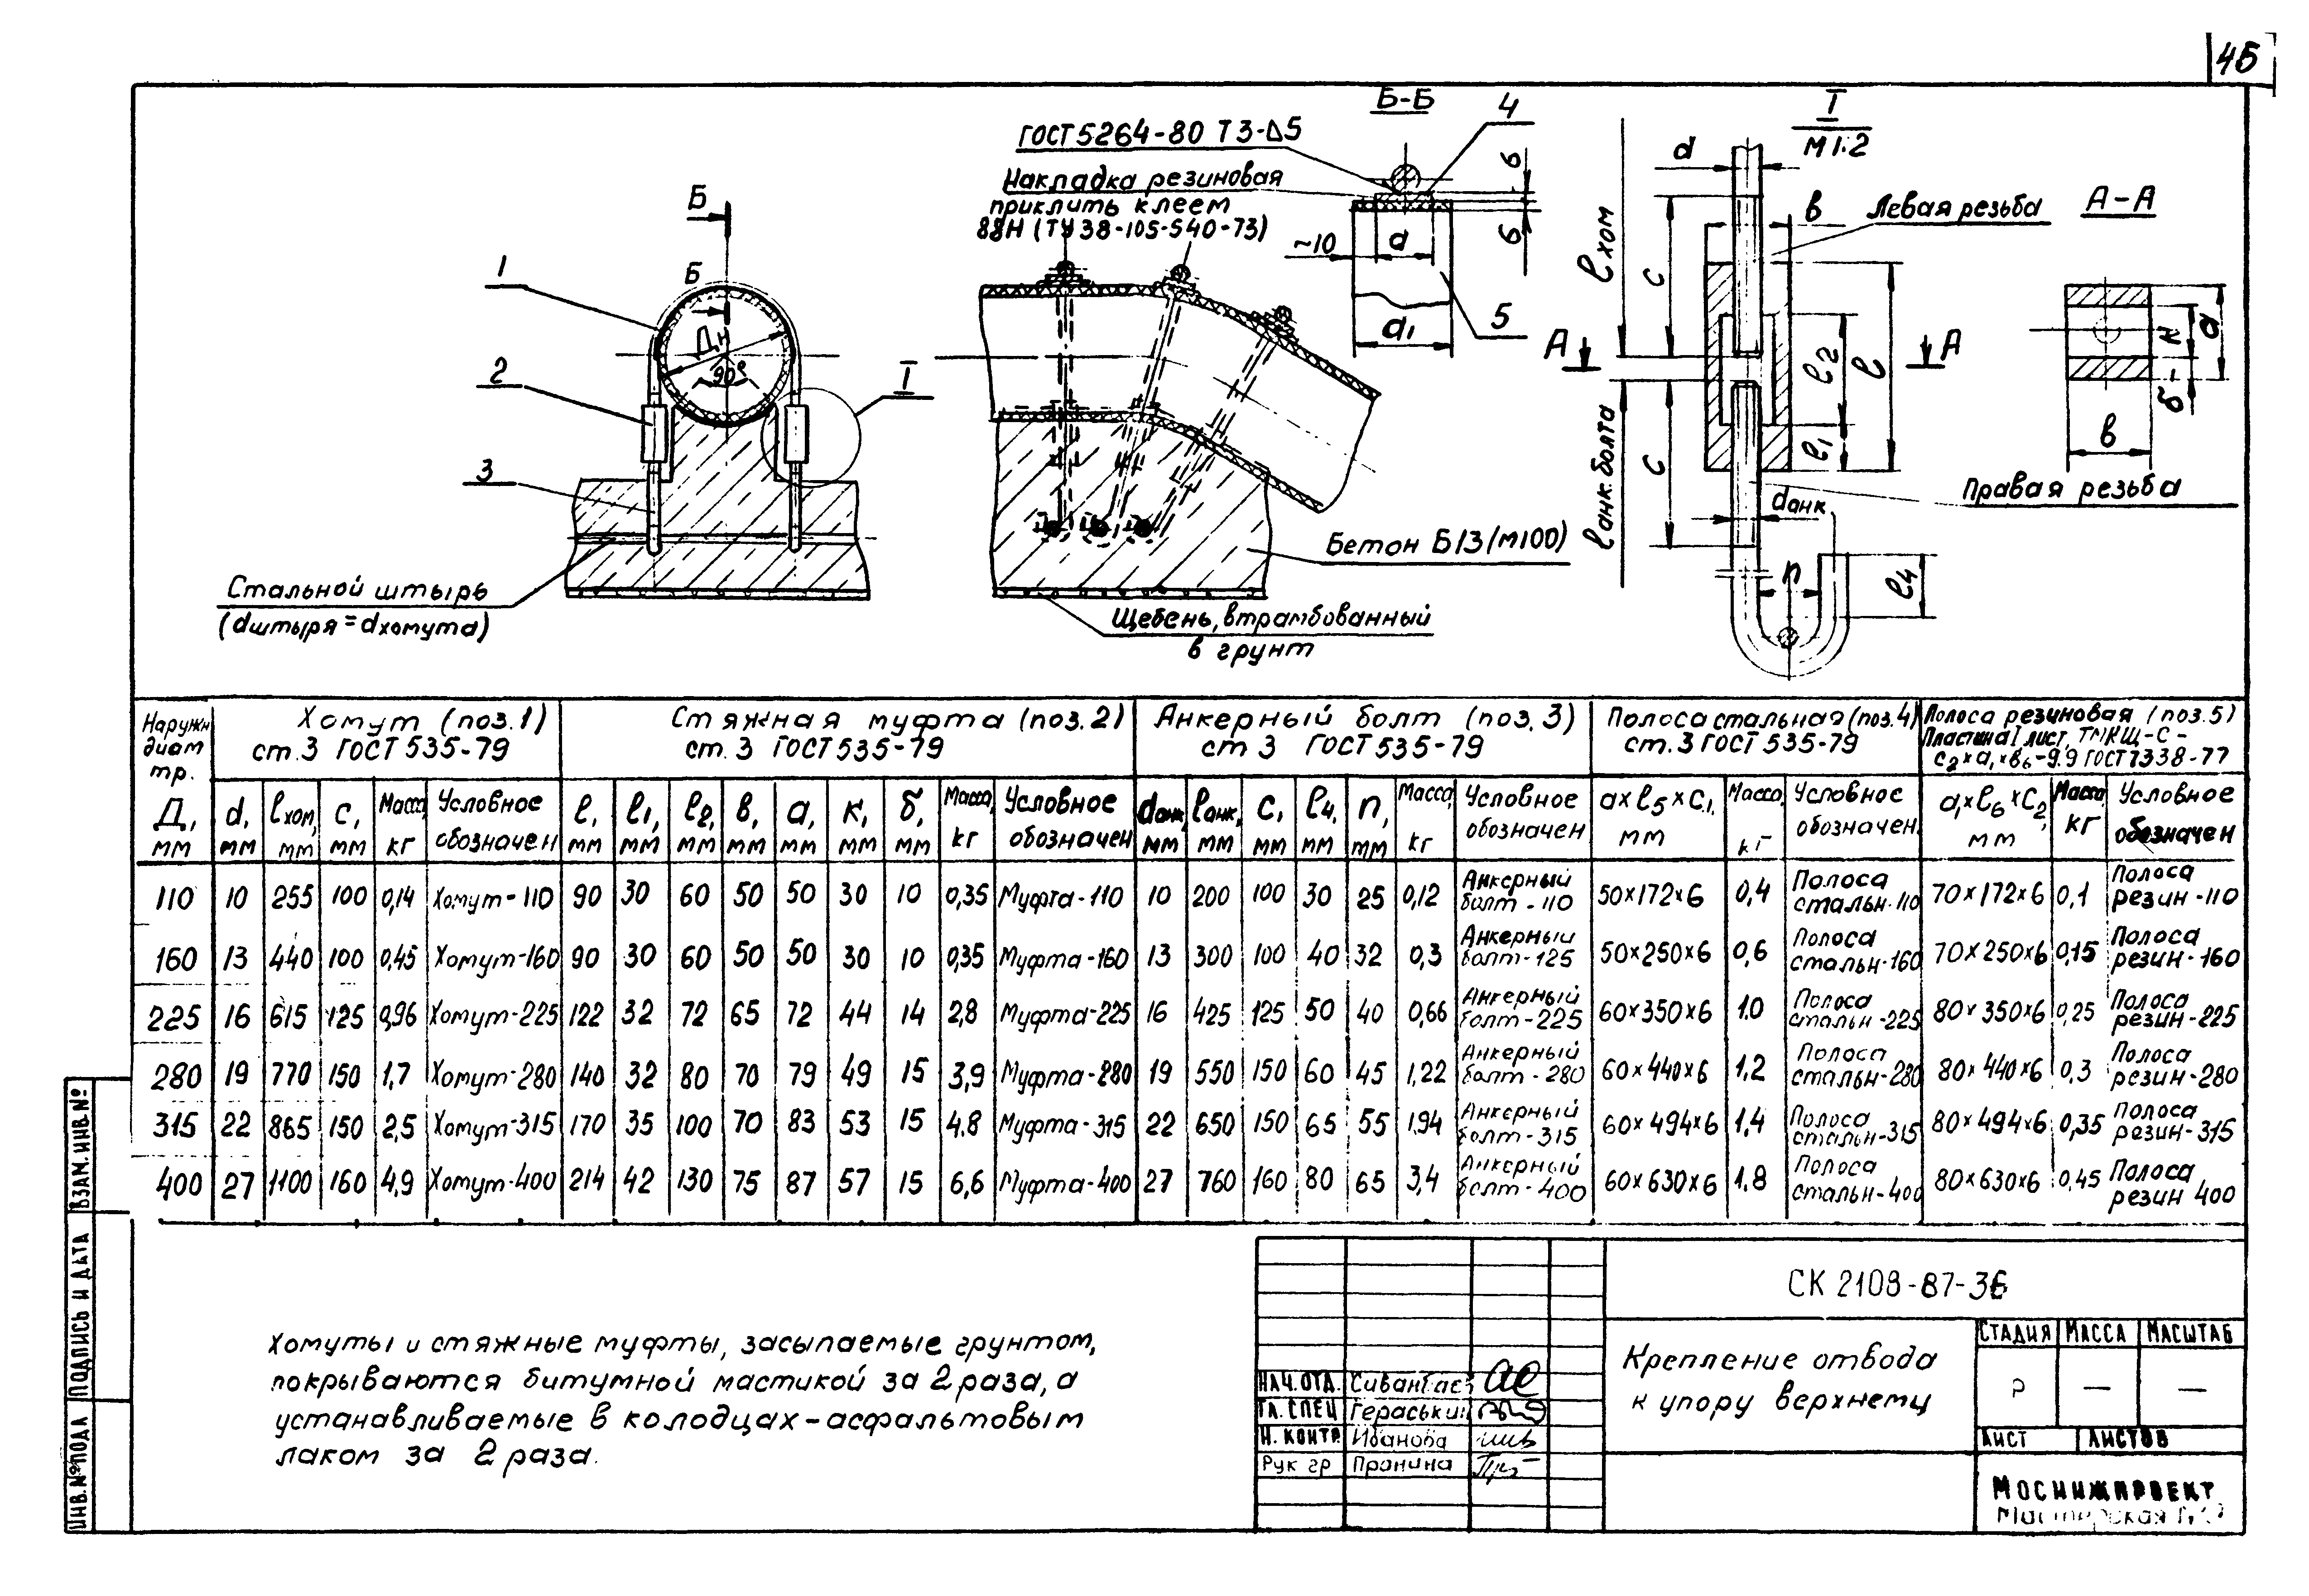 45
Б-Б
ГОСТ 5264-80 Т3-Δ5
4
Накладка резиновая
приклить клеем
88Н (ТУ 38-105-540-73)
~10
d
б
б
5
a1
I
М 1:2
d
в
Левая резьба
А-А
ℓхом
c
А
А
ℓ2
ℓ
ℓ1
ℓанк.болта
c
dанк
п
ℓ4
Правая резьба
к
а
б
в
Б
Б
1
Дн
90°
2
I
3
Стальной штырь
(dштыря=dхомута)
Бетон Б13 (М100)
Щебень, втрамбованный
в грунт
Наружн диам тр. Д, мм
Хомут (поз.1) ст.3 ГОСТ 535-79
Стяжная муфта (поз.2) ст.3 ГОСТ 535-79
Анкерный болт (поз.3) ст 3 ГОСТ 535-79
Полоса стальная (поз.4) ст.3 ГОСТ 535-79
Полоса резиновая (поз.5) Пластина I лист, ТМКЩ-С-с2×а1×в6-9.9 ГОСТ 7338-77
d, мм ℓхом, мм c, мм Масса, кг Условное обозначен ℓ, мм ℓ1, мм ℓ2, мм в, мм а, мм к, мм б, мм Масса, кг Условное обозначен dанк, мм ℓанк, мм c, мм ℓ4, мм п, мм Масса, кг Условное обозначен a×ℓ5×c1, мм Масса, кг Условное обозначен. a1×ℓ6×c2, мм Масса, кг Условное обозначен
110 10 255 100 0,14 Хомут-110 90 30 60 50 50 30 10 0,35 Муфта-110 10 200 100 30 25 0,12 Анкерный болт-110 50×172×6 0,4 Полоса стальн-110 70×172×6 0,1 Полоса резин-110
160 13 440 100 0,45 Хомут-160 90 30 60 50 50 30 10 0,35 Муфта-160 13 300 100 40 32 0,3 Анкерный болт-125 50×250×6 0,6 Полоса стальн-160 70×250×6 0,15 Полоса резин-160
225 16 615 125 0,96 Хомут-225 122 32 72 65 72 44 14 2,8 Муфта-225 16 425 125 50 40 0,66 Анкерный болт-225 60×350×6 1.0 Полоса стальн-225 80×350×6 0,25 Полоса резин-225
280 19 770 150 1,7 Хомут-280 140 32 80 70 79 49 15 3,9 Муфта-280 19 550 150 60 45 1,22 Анкерный болт-280 60×440×6 1,2 Полоса стальн-280 80×440×6 0,3 Полоса резин-280
315 22 865 150 2,5 Хомут-315 170 35 100 70 83 53 15 4.8 Муфта-315 22 650 150 65 55 1,94 Анкерный болт-315 60×494×6 1,4 Полоса стальн-315 80×494×6 0,35 Полоса резин-315
400 27 1100 160 4,9 Хомут-400 214 42 130 75 87 57 15 6,6 Муфта-400 27 760 160 80 65 3,4 Анкерный болт-400 60×630×6 1.8 Полоса стальн-400 80×630×6 0,45 Полоса резин 400
Хомуты и стяжные муфты, засыпаемые грунтом,
покрываются битумной мастикой за 2 раза, а
устанавливаемые в колодцах-асфальтовым
лаком за 2 раза.
СК 2108-87-36
Крепление отвода
к упору верхнему
Стадия Масса Масштаб
Р — —
Лист Листов
Мосинжпроект
Мастерская
Нач.отд.
Гл.спец Гераськин
Н.контр Иванова
Рук гр Пронина
Взам.инв.№
Подпись и дата
Инв.№ подл